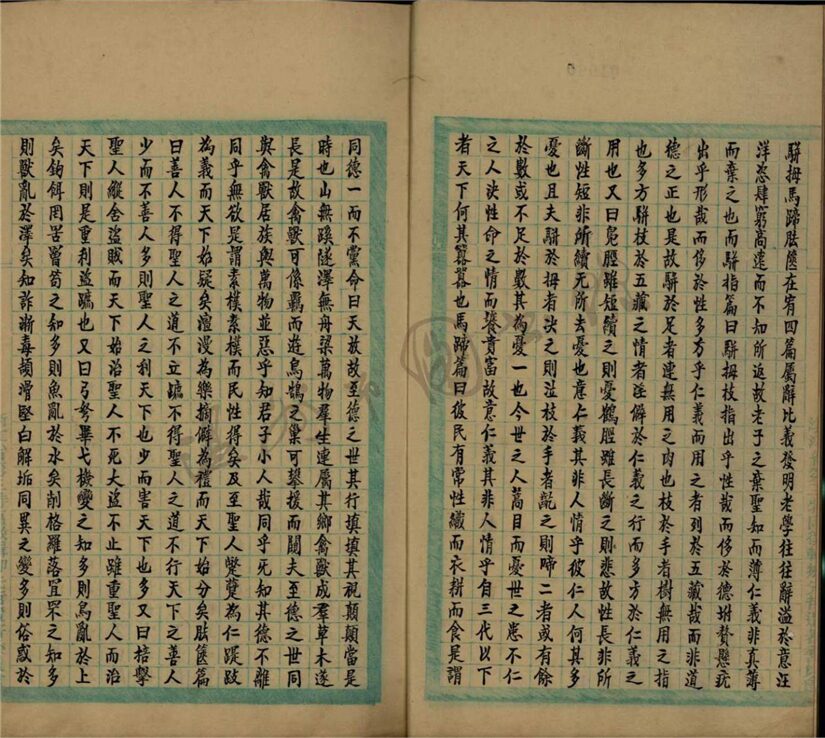 駢拇馬蹄胠篋在宥四篇屬辭比義發明老學往往辭溢於意汪
洋恣肆窮高遠而不知所返故老子之棄聖知而薄仁義非真薄
而棄之也而駢指篇曰駢拇枝指出乎性哉而侈於德附贅懸疣
出乎形哉而侈於性多方乎仁義而用之者列於五藏哉而非道
德之正也是故駢於足者連無用之肉也枝於手者樹無用之指
也多方駢枝於五藏之情者淫僻於仁義之行而多方於仁義之
用也又曰鳧脛雖短續之則憂鶴脛雖長斷之則悲故性長非所
斷性短非所續無所去憂也意仁義其非人情乎彼仁人何其多
憂也且夫駢於拇者决之則泣枝於手者齕之則啼二者或有餘
於數或不足於數其為憂一也今世之人蒿目而憂世之患不仁
之人决性命之情而饕貴富故意仁義其非人情乎自三代以下
者天下何其囂囂也馬蹄篇曰彼民有常性織而衣耕而食是謂
同德一而不黨命曰天放故至德之世其行填填其視顛顛當是
時也山無蹊隧澤無舟梁萬物羣生連屬其鄉禽獸成羣草木遂
長是故禽獸可係羈而遊鳥鵲之巢可攀援而闚夫至德之世同
與禽獸居族與萬物並惡乎知君子小人哉同乎无知其德不離
同乎無欲是謂素樸素樸而民性得矣及至聖人蹩躠為仁踶跂
為義而天下始疑矣澶漫為樂摘僻為禮而天下始分矣胠篋篇
曰善人不得聖人之道不立蹠不得聖人之道不行天下之善人
少而不善人多則聖人之利天下也少而害天下也多又曰掊擊
聖人縱舍盜賊而天下始治聖人不死大盜不止雖重聖人而治
天下則是重利盜蹠也又曰弓弩畢弋機變之知多則鳥亂於上
矣鈎餌罔罟罾笱之知多則魚亂於水矣削格羅落罝罘之知多
則獸亂於澤矣知詐漸毒頡滑堅白解垢同異之變多則俗惑於